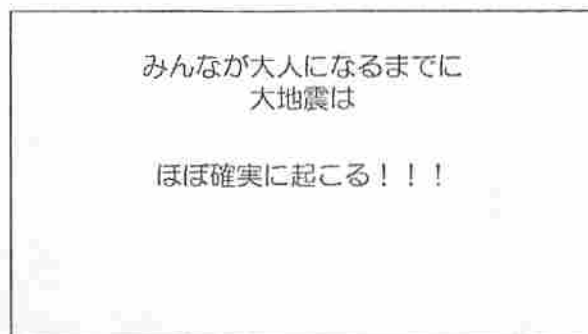 みんなが大人になるまでに
大地震は
ほぼ確実に起こる！！！